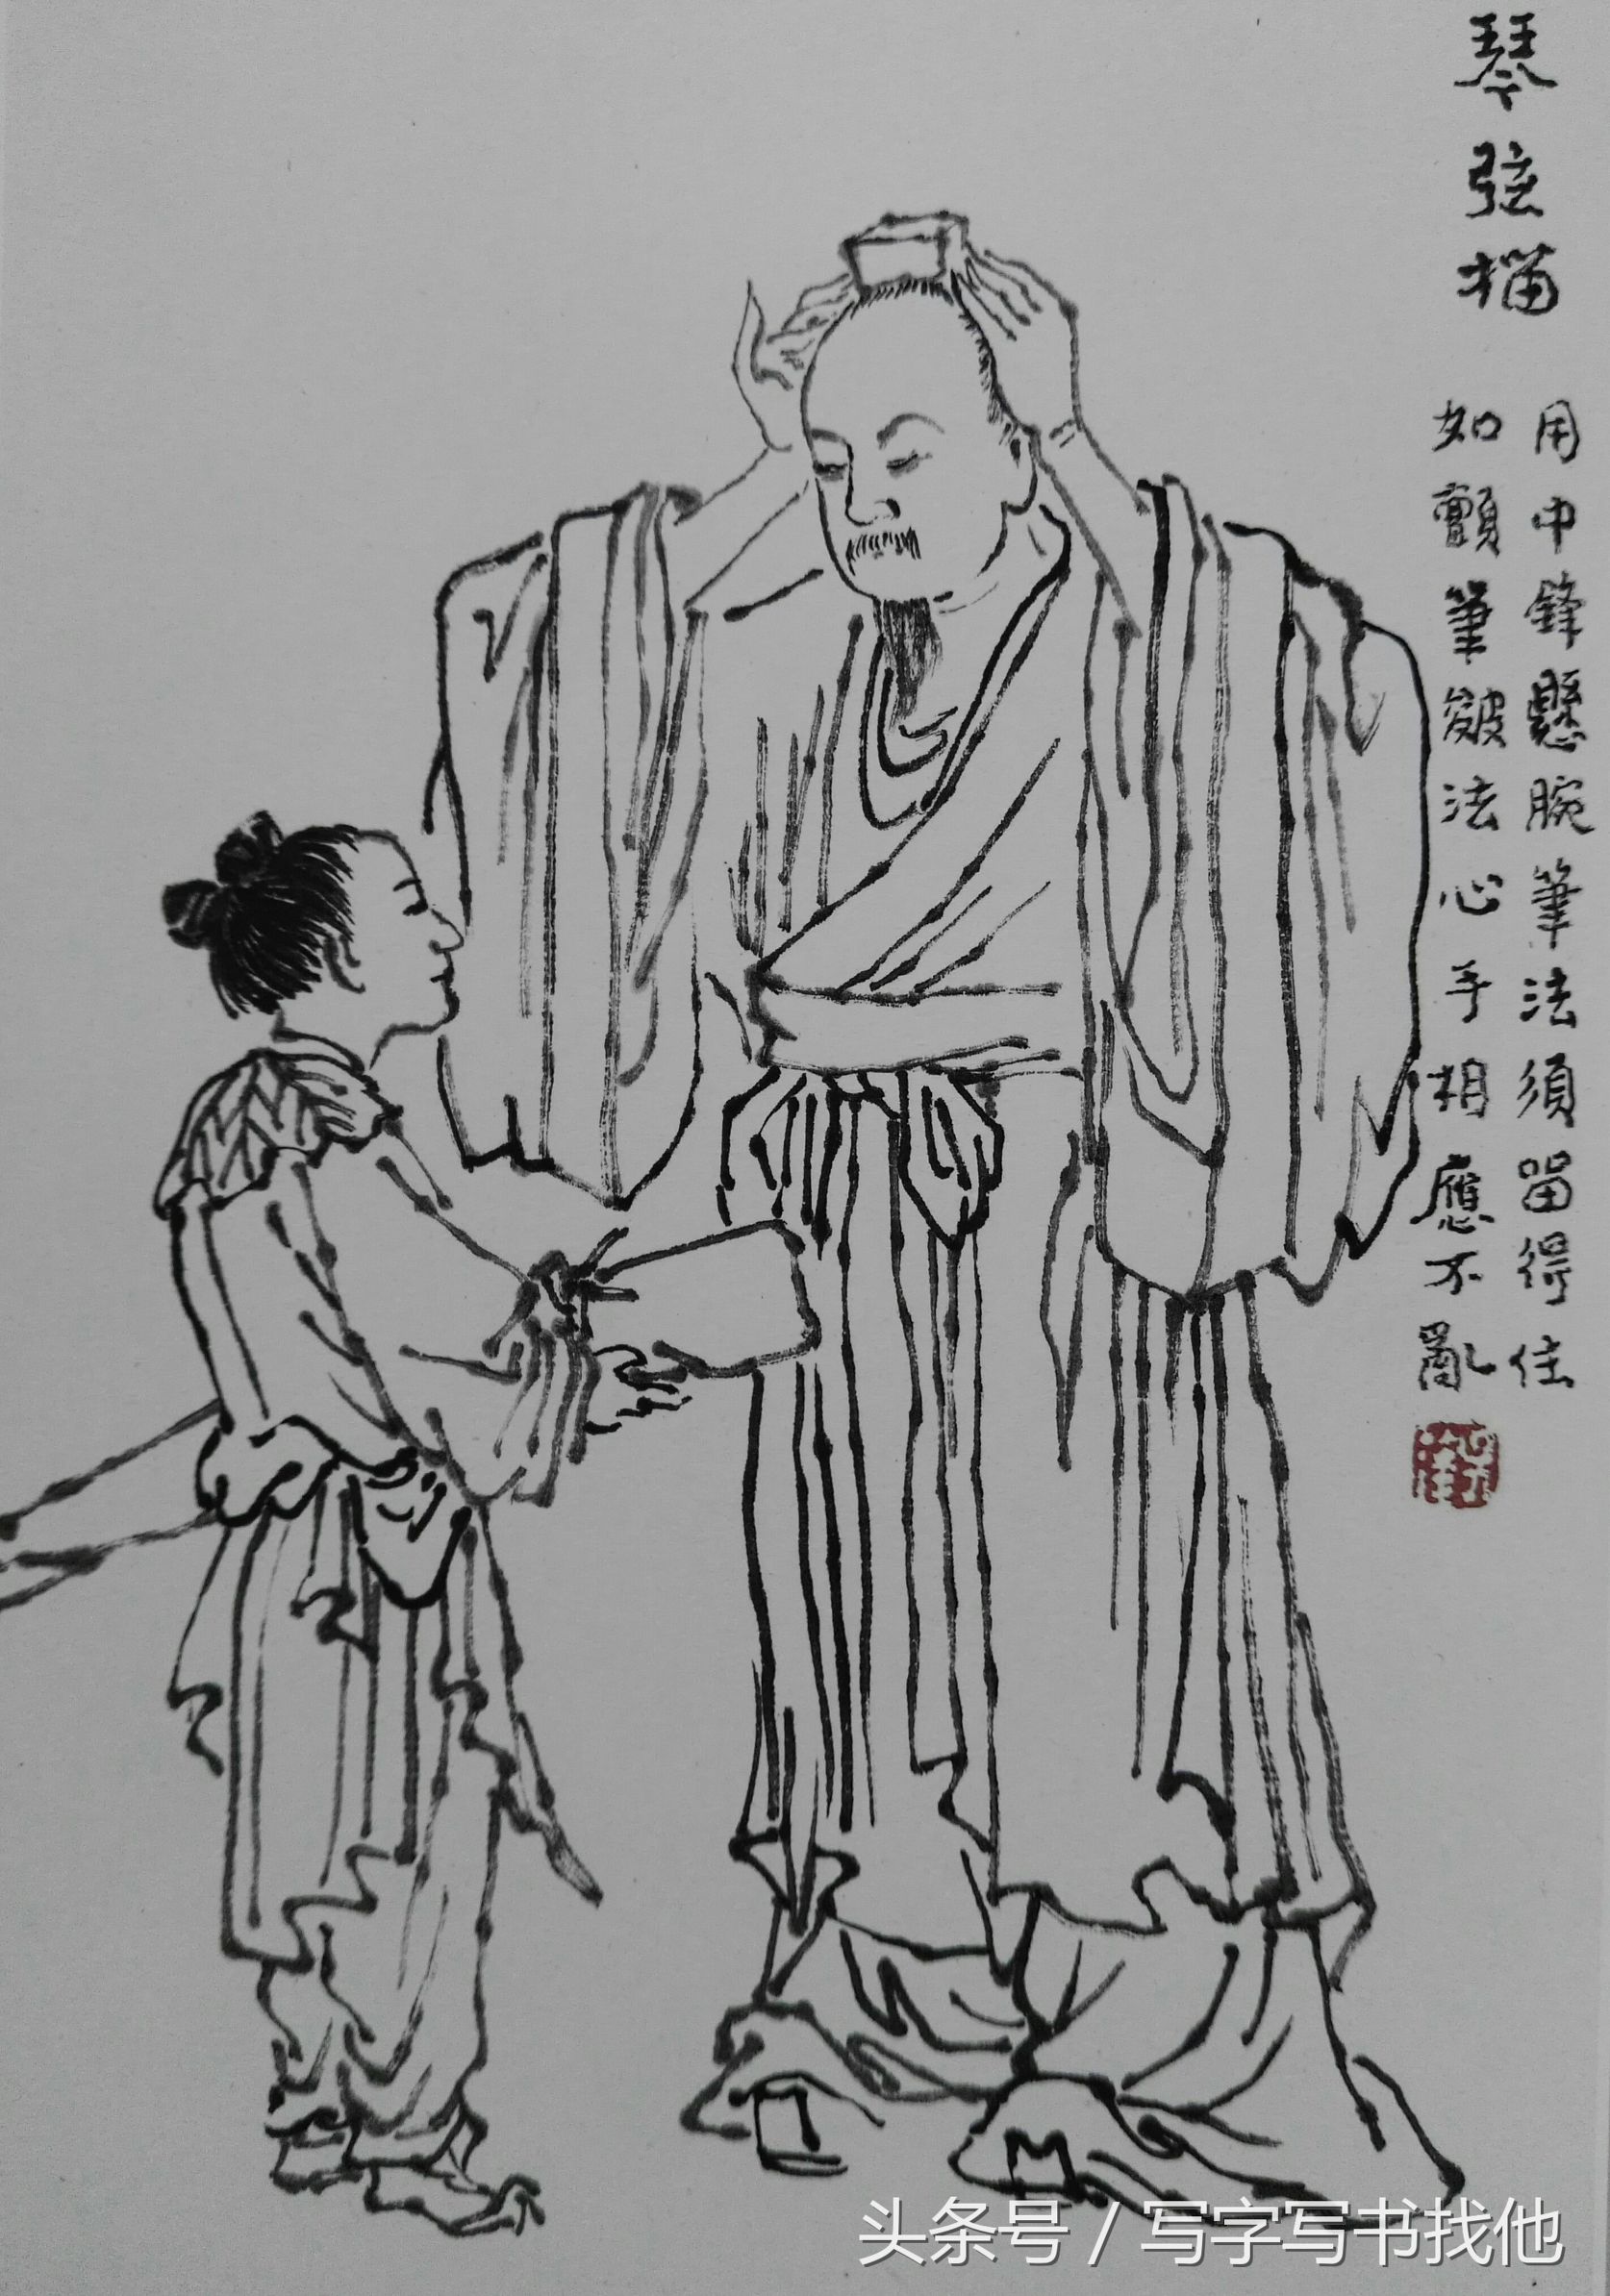 琴弦描
用中鋒懸腕筆法須畱得住
如顫筆皴法心手相應不亂
头条号 / 写字写书找他